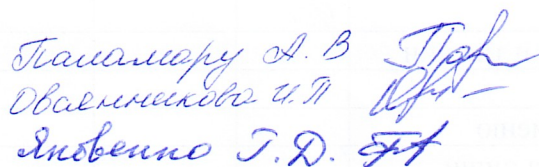 Паламару А. В
Овсянникова И. П
Яковенко Г. Д.